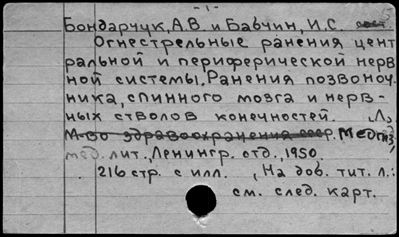 - 1 -
Бондарчук, А.В. и Бавчин, И.С.
Огнестрельные ранения цент
ральной и периферической нерв
ной системы. Ранения позвоноч.
ника, спинного мозга и нерв-
ных стволов конечностей. Л.,
М-во здравоохранения СССР. Медгиз,
мед. лит., Ленингр. отд., 1950.
216 стр. с илл. , На дов. тит. л.:
см. след. карт.